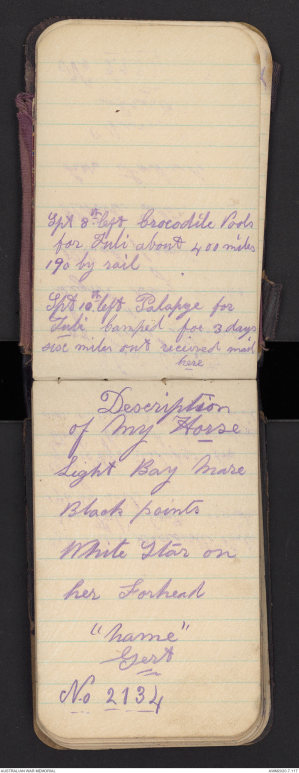 Spt 8th left Crocodile Pools
for Tuli about 400 miles
190 by rail
Spt 10th left Palapye for
Tuli camped for 3 days
six miles out recieved mail
here
Description
of My Horse
Light Bay Mare
Black points
White Star on
her Forhead
"name"
Gert
No 2134
AUSTRALIAN WAR MEMORIAL